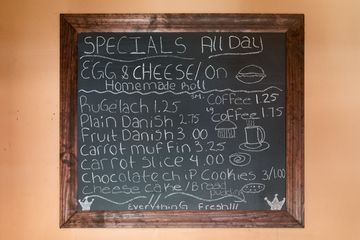 SPECIALS All Day
EGG & CHEESE/On
Homemade Roll
Rugelach 1.25 sm. Coffee 1.25
Plain Danish 2.75 lg Coffee 1.75
Fruit Danish 3.00
Carrot muffin 3.25
Carrot Slice 4.00
Chocolate chip Cookies 3/1.00
Cheese cake/Bread pudding
Everything Fresh!!!